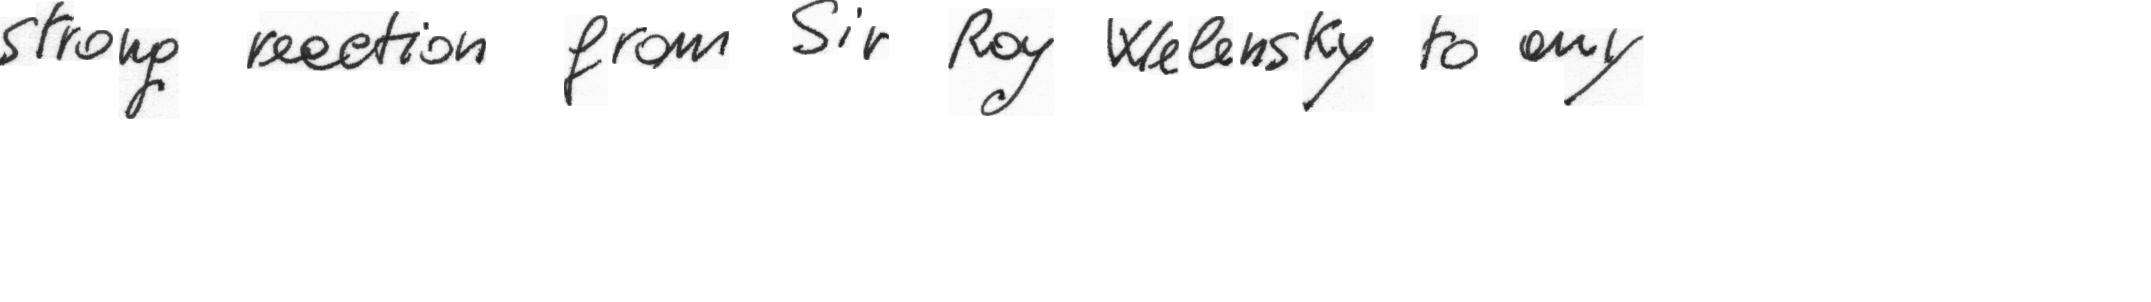 strong reaction from Sir Roy Welensky to any